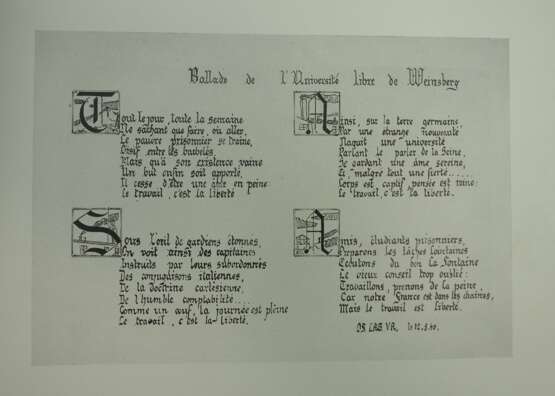 Ballade de l'Université libre de Weinsberg
Tout le jour, toute la semaine
Ne sachant que faire, où aller,
Le pauvre prisonnier se traîne,
Oisif entre les barbelés,
Mais qu'à son existence vaine
Un but enfin soit apporté,
Il cesse d'être une âme en peine:
Le travail, c'est la liberté
Ainsi, sur la terre germaine,
Par une étrange nouveauté
Naquit une université
Parlant le parler de la Seine,
Se gardant une âme sereine,
Et malgré tout une fierté.....
Corps est captif, pensée est reine:
Le travail, c'est la liberté.
Sous l'œil de gardiens étonnés,
On voit ainsi des capitaines
Instruits par leurs subordonnés
Des conjugaisons italiennes,
De la doctrine cartésienne,
De l'humble comptabilité....
Comme un œuf, la journée est pleine
Le travail, c'est la liberté.
Amis, étudiants prisonniers,
Préparons les tâches lointaines
Ecoutons du bon La Fontaine
Le vieux conseil trop oublié:
Travaillons, prenons de la peine,
Car notre France est dans les chaînes,
Mais le travail est liberté.